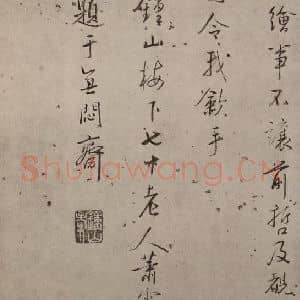 繪事不讓前哲及觀
令我斂手
鍾山梅下七十老人蕭雲
題于無悶齋
Shufawang.Cn